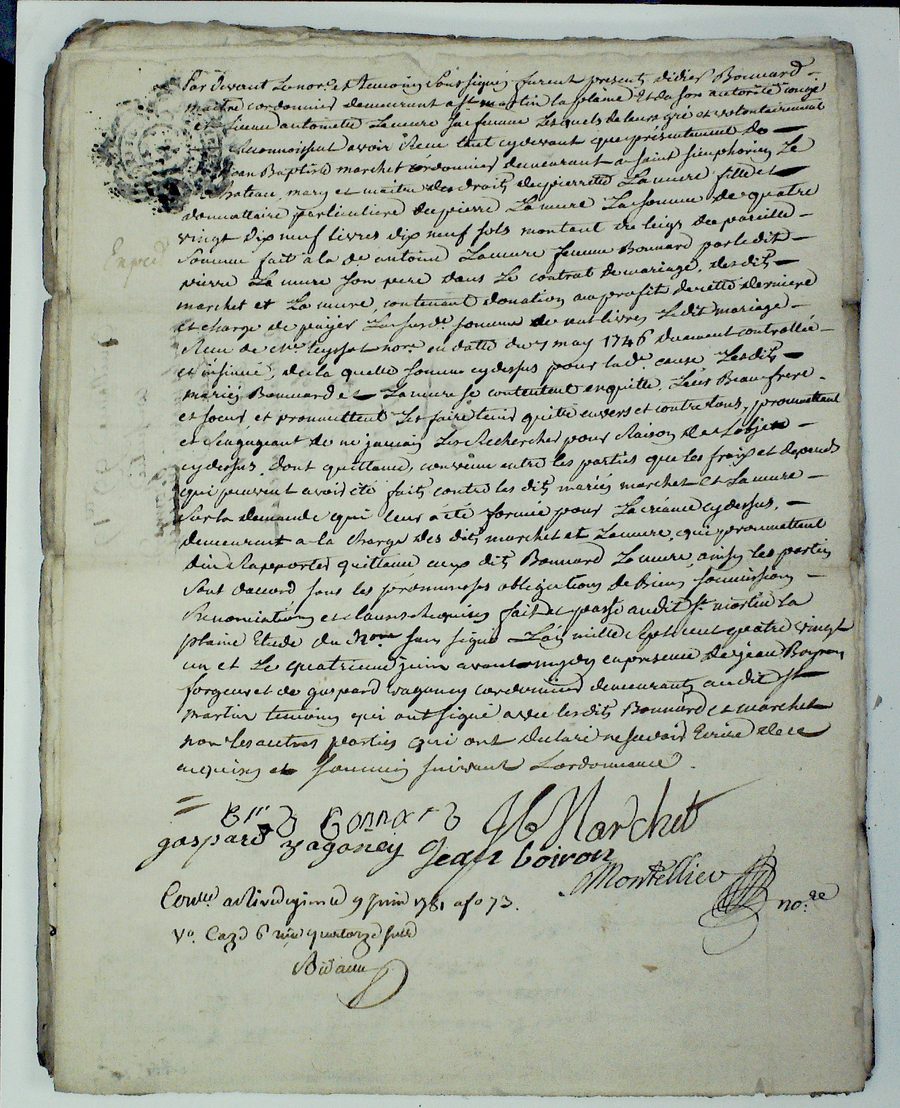 Par devant Le nore. et temoins Soussignés furent presents didier Bonnard
maitre cordonnier demeurant a St. martin la plaine Et de Son autorité
antoinette Lamure Sa femme Lesquels de leurs gré et volontairement
Reconnoissent avoir Reçu tant cydevant que présentement de
Jean Baptiste marchet cordonnier demeurant à Saint Simphorien Le
chateau, mary et maitre des droits de pierrette Lamure fille et
donnattaire particuliere de pierre Lamure La Somme de quatre
vingt dix neuf livres dix neuf Sols montant du legs de pareille
Somme fait a la de antoine Lamure femme Bonnard par le dit
pierre La mure Son pere dans Le contrat de mariage desdits
marchet et Lamure, contenant donation au profit de cette derniere
et charge de payer La Susde. Somme de cent livres Ledit mariage
Reçu de Me. teysset nore. en datte du 7 may 1746 duement controllé
et insinué, de la quelle Somme cydessus pour lade. cause Lesdits
mariés Bonnard et Lamure Se contentent en quitte Leurs Beaufrere
et Soeur et promettent Les faire tenir quitte envers et contre tous, promettant
et Sengageant de ne jamais Les Rechercher pour Raison de Lobjet
cydessus, dont quittance, convenu entre les parties que les fraix et depends
qui peuvent avoir été faits contre les dits mariés marchet et Lamure
Sur la demande qui leur a été formée pour La créance cydessus,
demeurant a la charge des dits marchet et Lamure, qui promettent
den Rapporter quittance aux dits Bonnard Lamure, ainsy les parties
Sont daccord Sous les promesses obligations de Biens Soumissions
Renonciations et clauses Requises fait et passé audit St. martin la
plaine Etude du Nore. Sous signé Lan mille Sept cent quatre vingt
un et Le quatrieme juin avant midy en presence de jean Boyron
forgeur et de gaspard vaganay cordonnier demeurants audit St
martin temoins qui ont Signé avec lesdits Bonnard et marchet
non les autres parties qui ont declaré ne Savoir Ecrire de ce
enquises et Sommées Suivant Lordonnance.
Bonnard JB Marchet
gaspard vaganey Jean boiron
Montellier no.re
Conlé a Rivedegier le 9 juin 1781 a fo 73.
Vo. Caze 6 Reçu quatorze sols